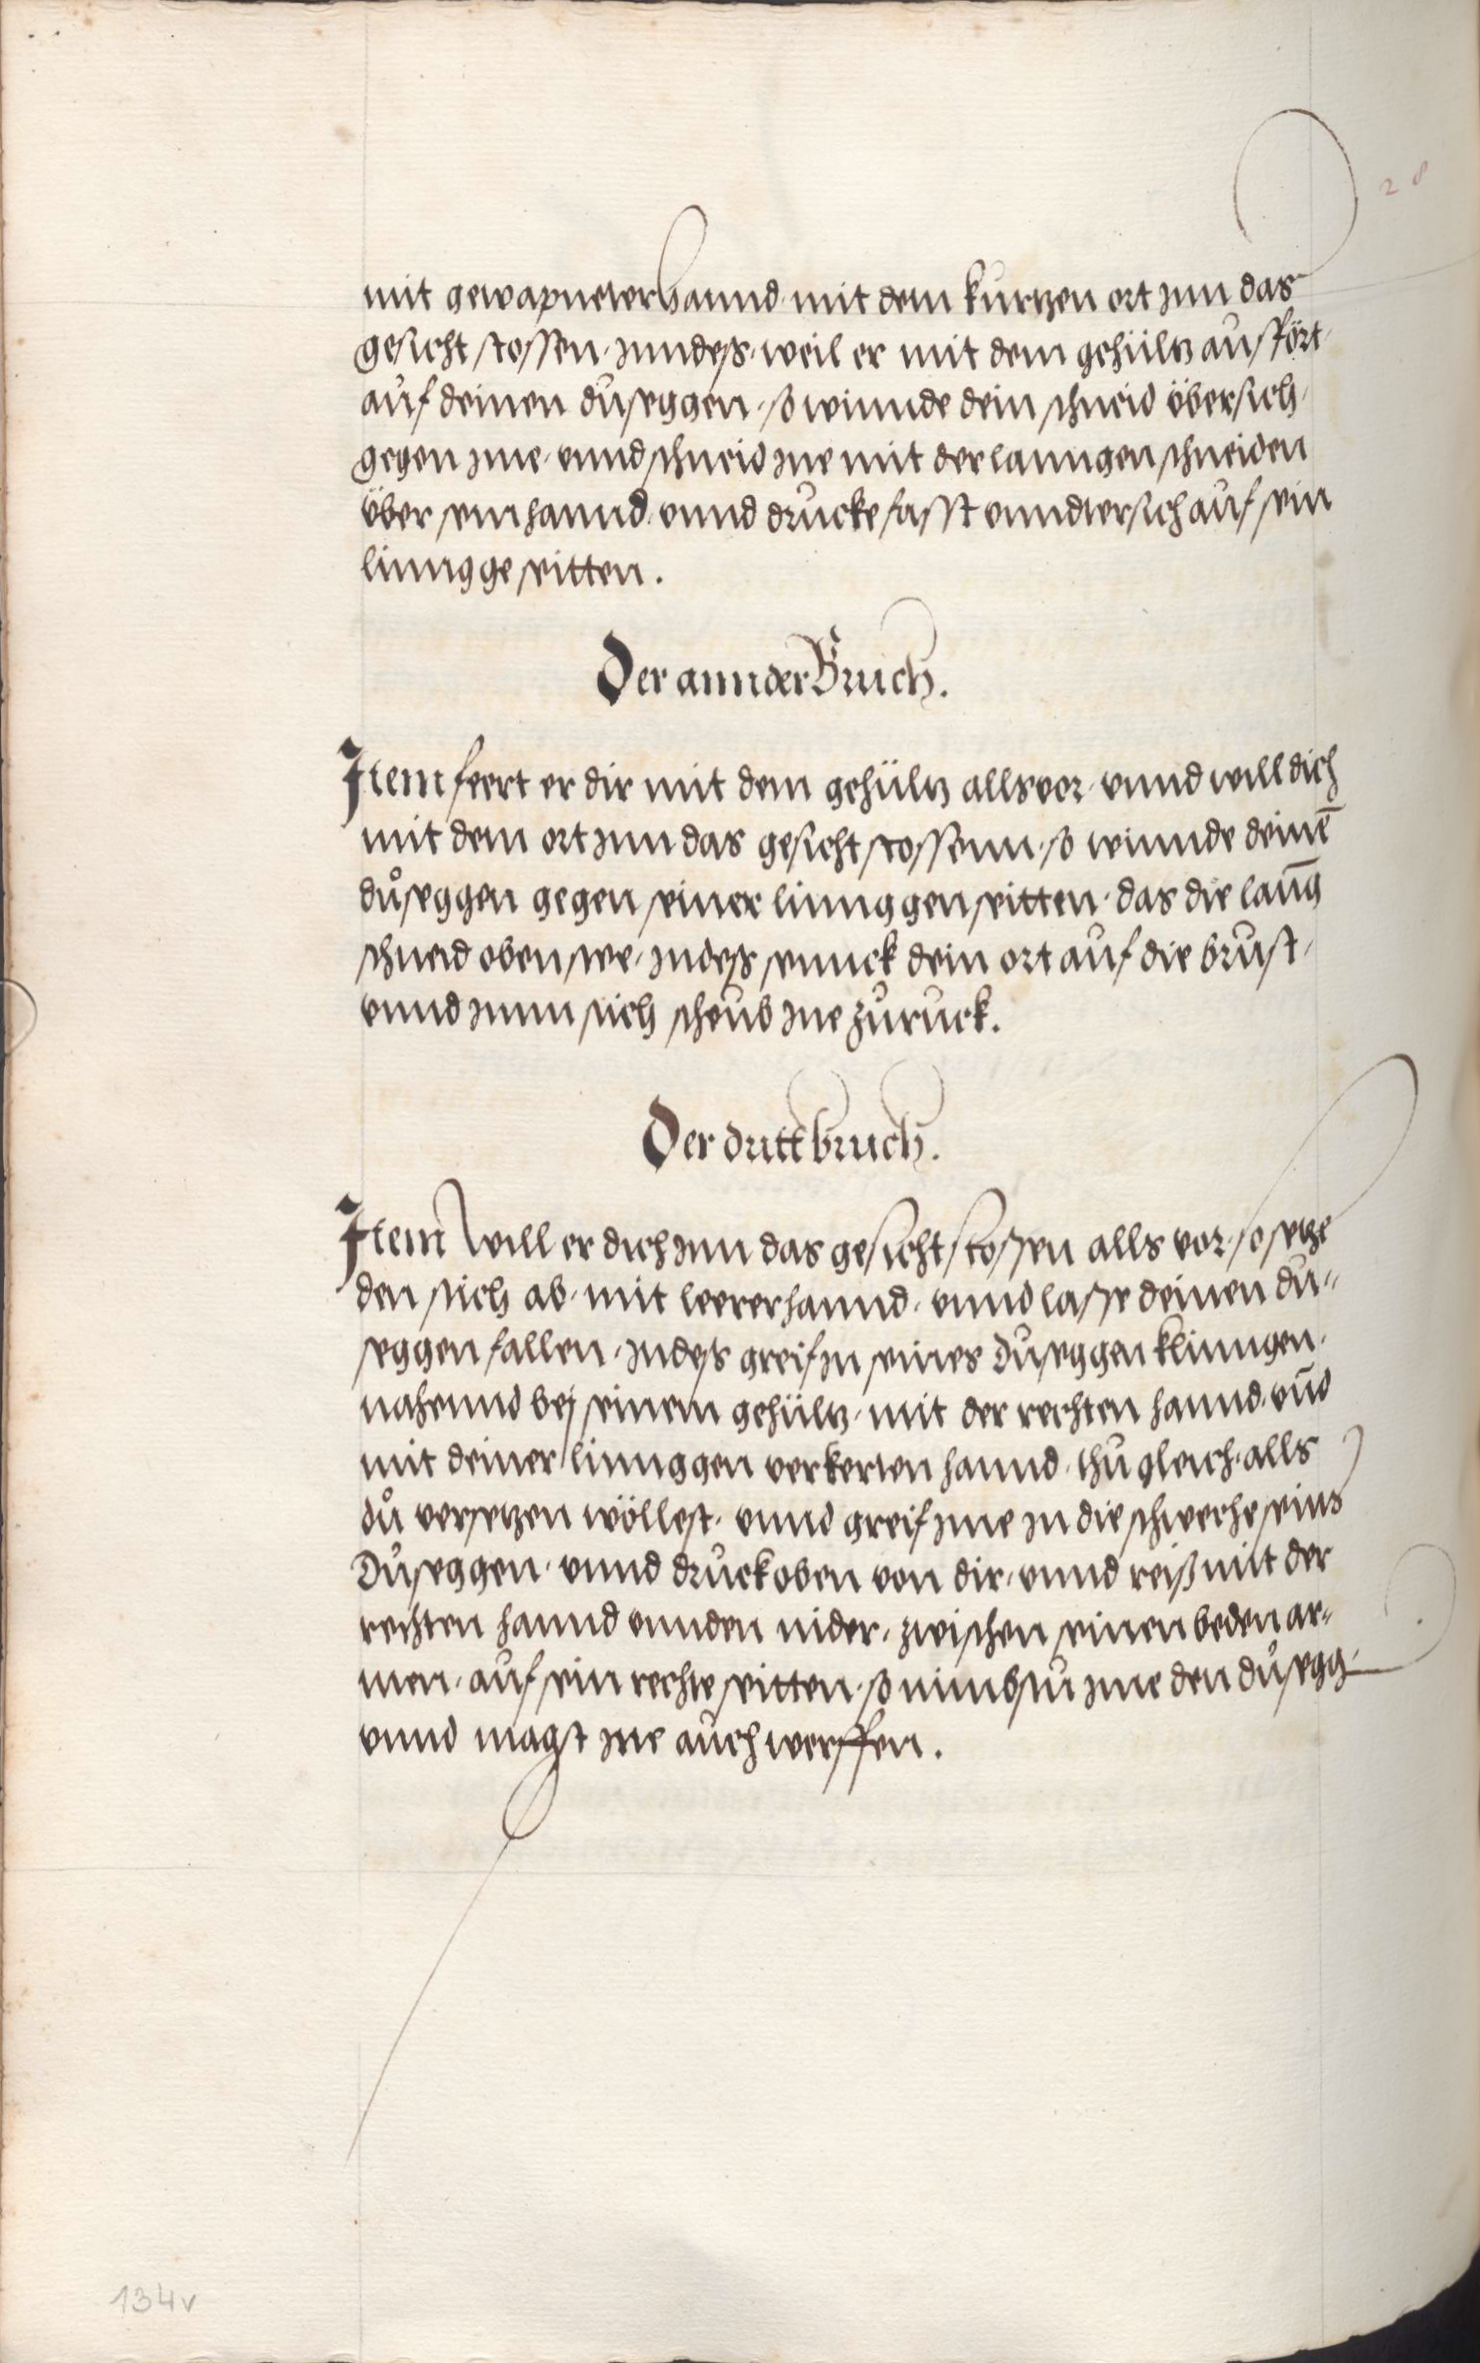 28
mit gewapneter hannd mit dem kurtzen ort inn das
gesicht stossen, inndess, weil er mit dem gehültz auffört,
auf deinen duseggen, so winnde dein schneid übersich,
gegen ime, vnnd schneid ine mit der lanngen schneiden
über sein hannd, vnnd drucke fasst vnndtersich auf sein
lingge seitten.
Der annder Bruch.
Item feert er dir mit dem gehültz alls vor, vnnd will dich
mit dem ort inn das gesicht stossenn, so winnde deinē
důseggen gegen seiner linnggen seitten, das die lanng
schneid oben stee, indess sennck dein ort auf die brust,
vnnd imm stich scheub ine zuruck.
Der dritt bruch.
Item will er dich inn das gesicht stossen alls vor, so setze
den stich ab, mit leerer hannd, vnnd lasse deinen du-
seggen fallen, indess greif in seines Duseggen klinngen,
nahennd bej seinem gehültz, mit der rechten hannd, vnd
mit deiner linnggen verkerten hannd, thu gleich, alls
dů versetzen wöllest, vnnd greif ime in die schweche seins
Důseggen, vnnd druck oben von dir, vnnd reiß mit der
rechten hannd vnnden nider, zwischen seinen beden ar-
men, auf sein rechte seitten, so nimbstu ime den důsegg,
vnnd magst ine auch werffen.
134v